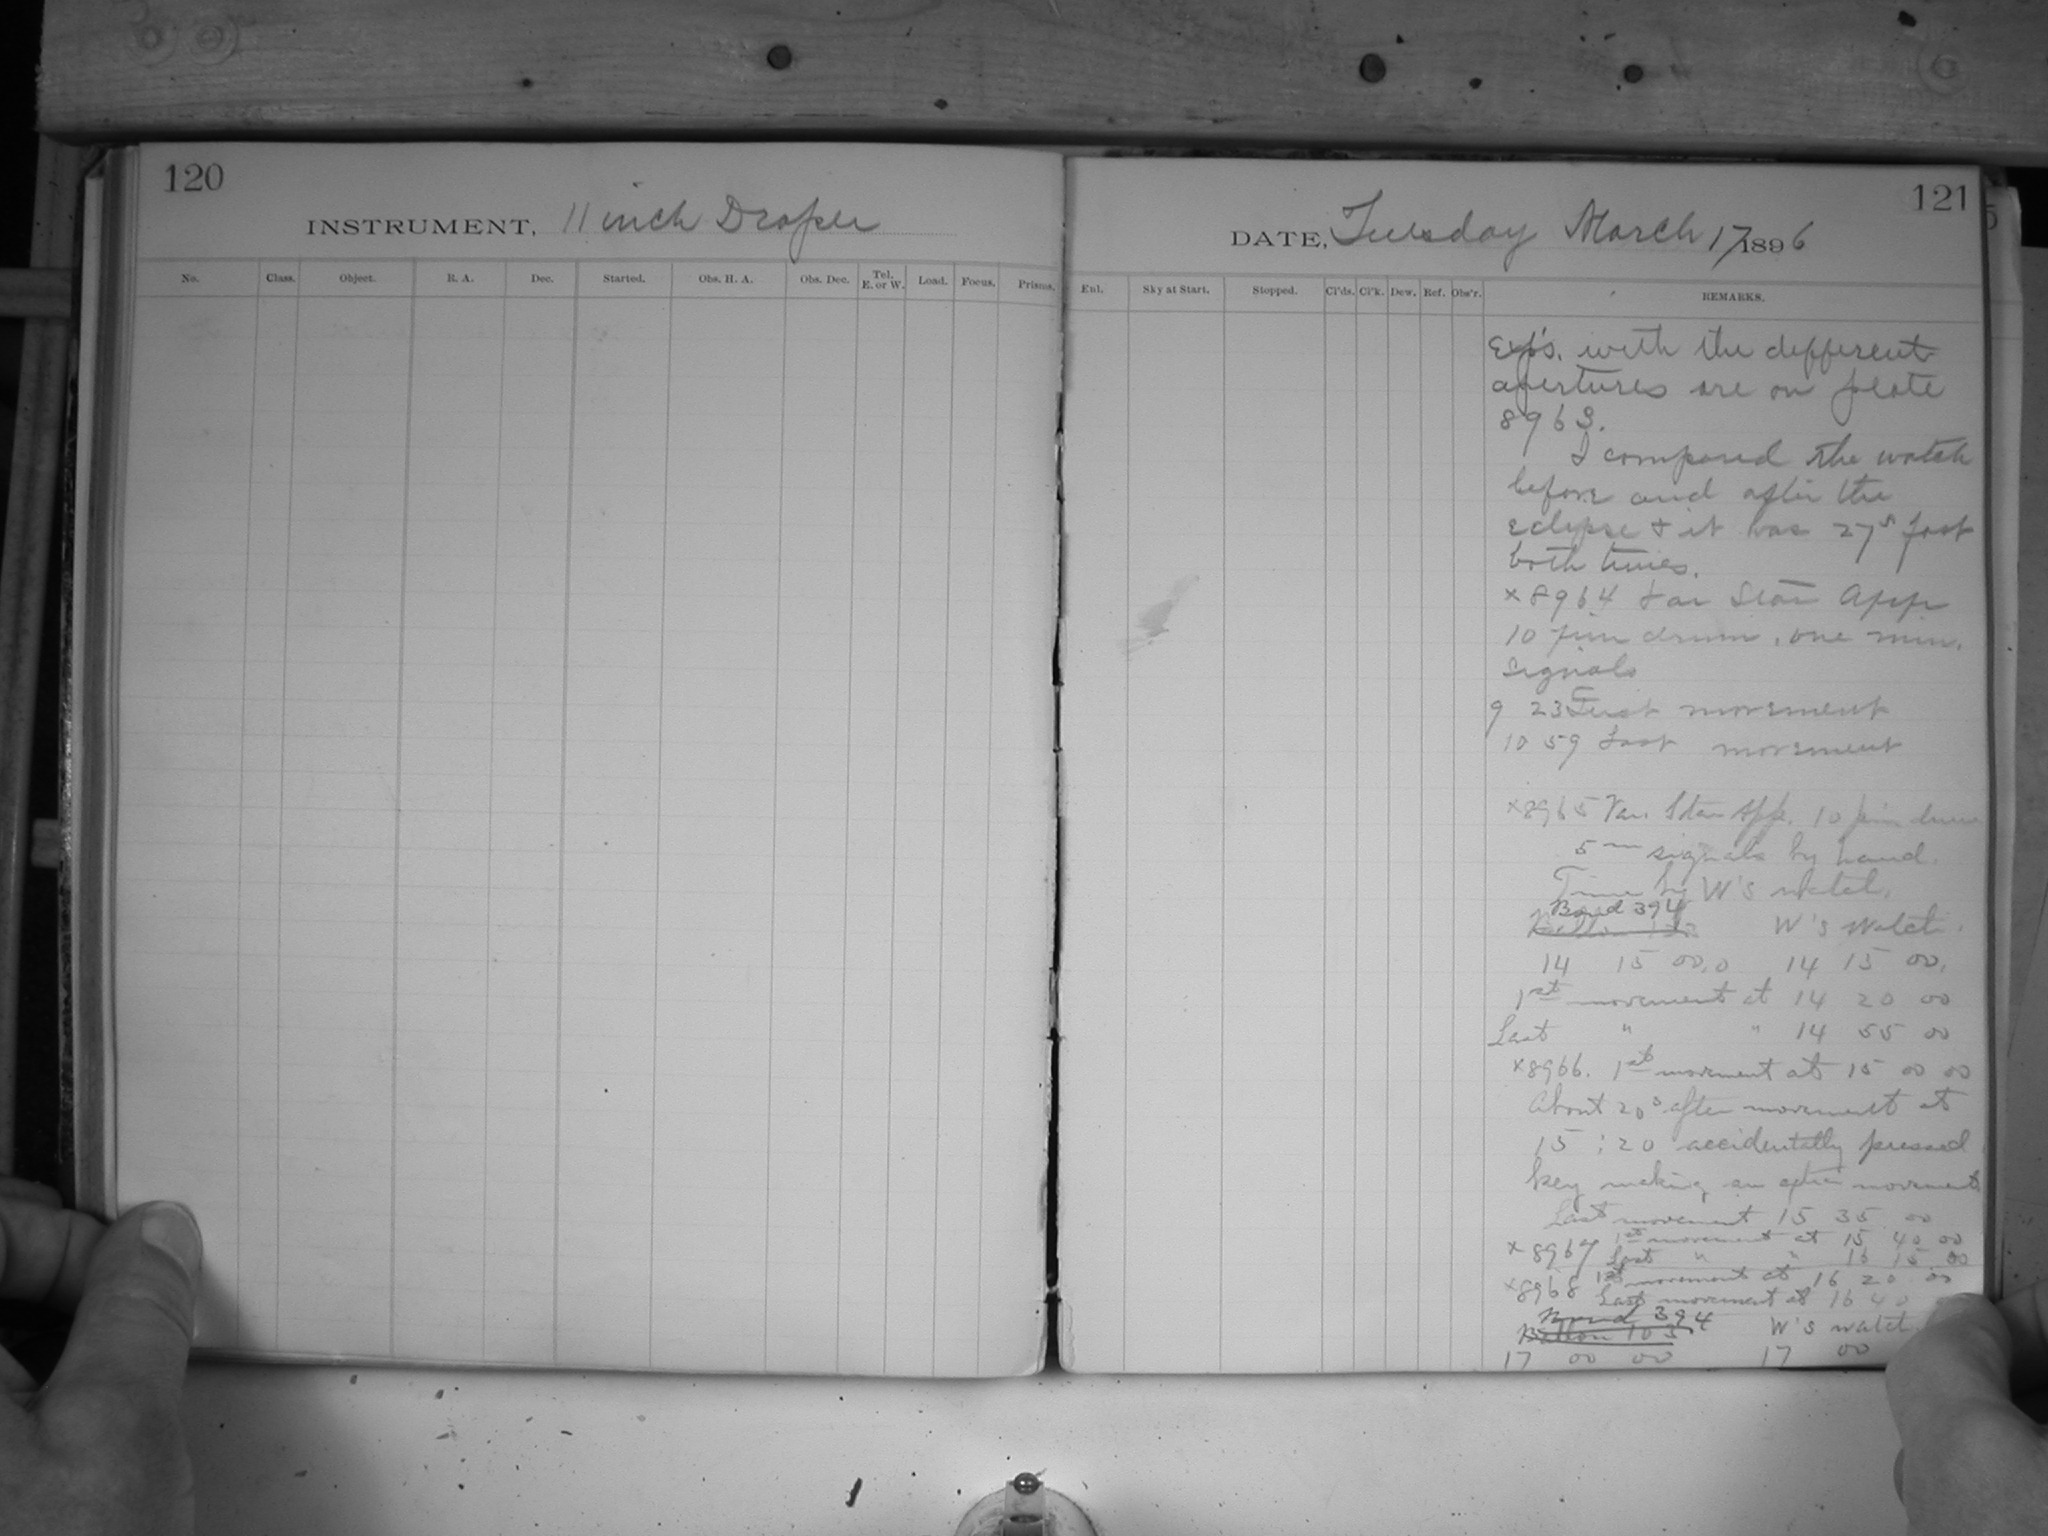 120
INSTRUMENT, 11 inch Draper
No. Class. Object. R. A. Dec. Started. Obs. H. A. Obs. Dec. Tel. E. or W. Load. Focus. Prisms.
121
DATE, Tuesday March 17 1896
Eul. Sky at Start. Stopped. Cl'ds. Cl'k. Dew. Ref. Obs'r. REMARKS.
Exp's. with the different
apertures are on plate
8963.
I compared the watch
before and after the
eclipse & it was 27s fast
both times.
x8964 Var Star App
10 pin drum, one min.
signals
9 23 First movement
10 59 Last movement
x8965 Var. Star App. 10 pin drum
5m signals by hand.
Time by W's watch.
Bond 394
W's Watch.
14 15 00.0 14 15 00.
1st movement at 14 20 00
Last " " 14 55 00
x8966. 1st movement at 15 00 00
About 20s after movement at
15 : 20 accidentally pressed
key making an extra movement
Last movement 15 35 00
x8967 1st movement at 15 40 00
Last " " 16 15 00
x8968 1st movement at 16 20 00
Last movement at 16 40
Bond 394
W's watch
17 00 00 17 00